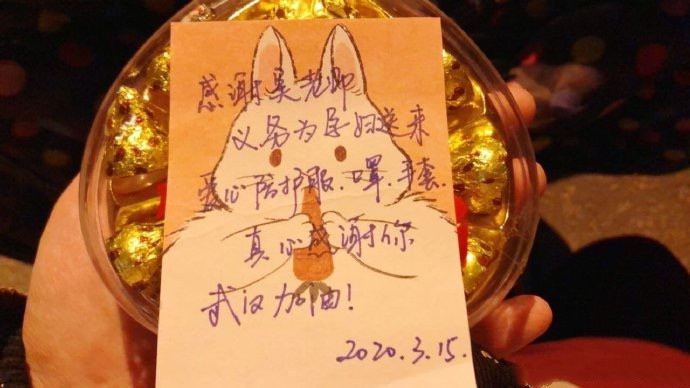 感谢吴老师
义务为孕妇送来
爱心防护服、罩、手套.
真心感谢你
武汉加油!
2020.3.15.